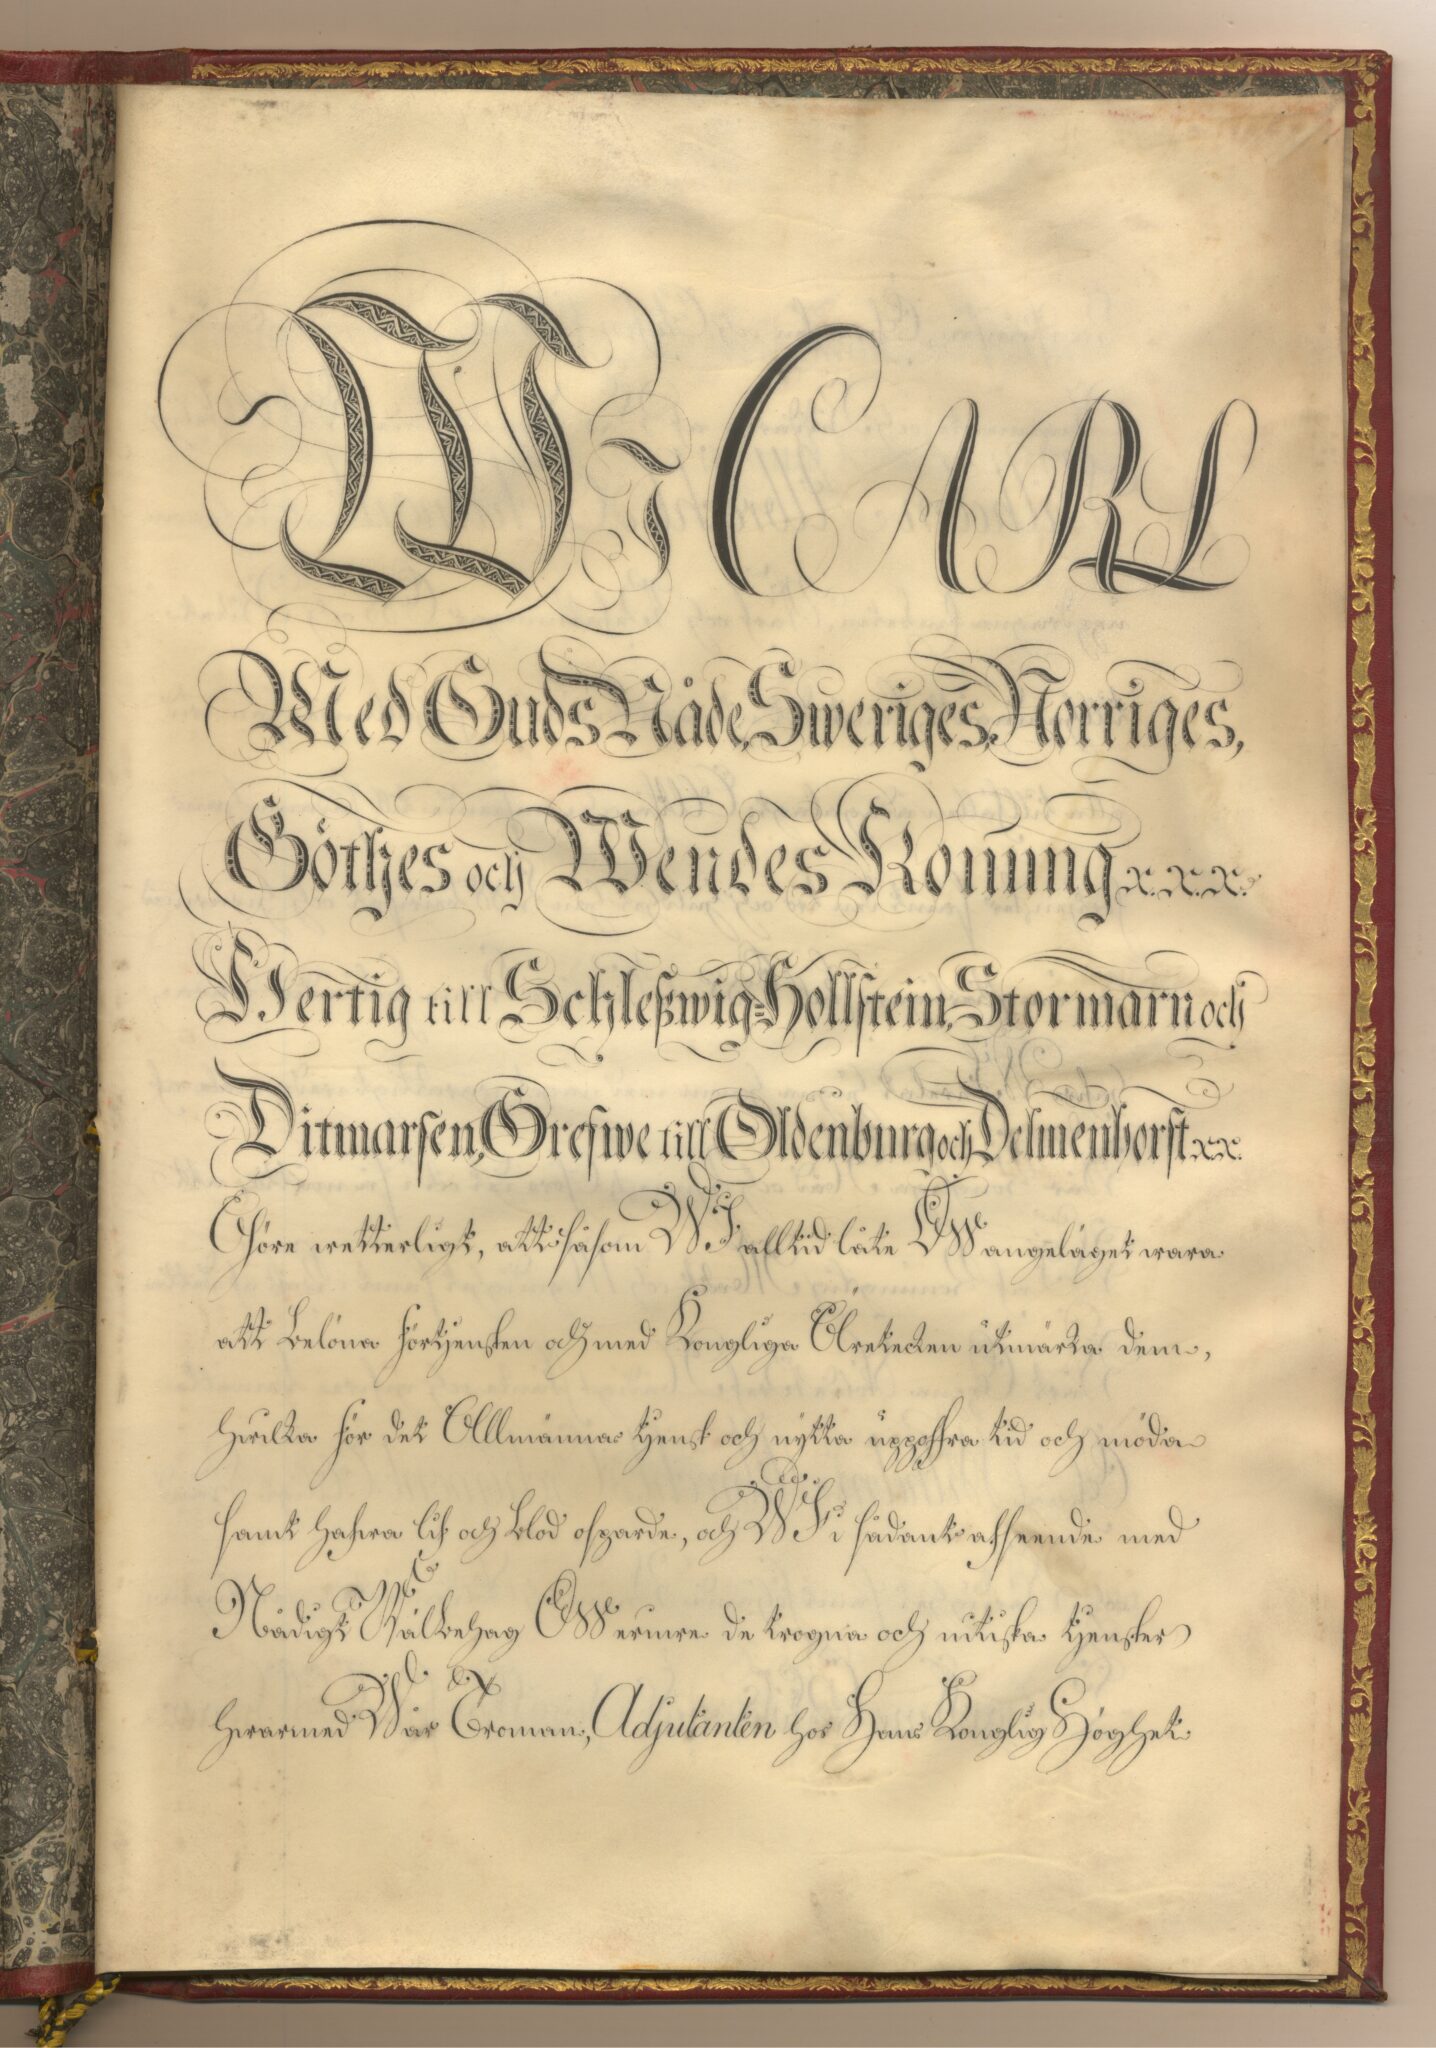 Wi CARL
Med Guds Nåde, Sweriges, Norriges,
Göthes och Wendes Konung x. x. x.
Hertig till Schleßwig=Hollstein, Stormarn och
Ditmarsen, Grefwe till Oldenburg och Delmenhorst x x.
Göre wetterligt, att såsom WI alltid låte Oß angeläget wara
att belöna förtjensten och med Kongliga Ynnestbetygelser utmärka dem,
hwilka för det Allmännas tjenst och nytta uppoffra tid och möda
samt hafwa lif och blod ospard, och WI i sådant afseende med
Nådigt Wälbehag Oß erinre de trogna och nitiska tjenster
hwarmed Wår Troman, Adjutanten hos Hans Konglig Höghet